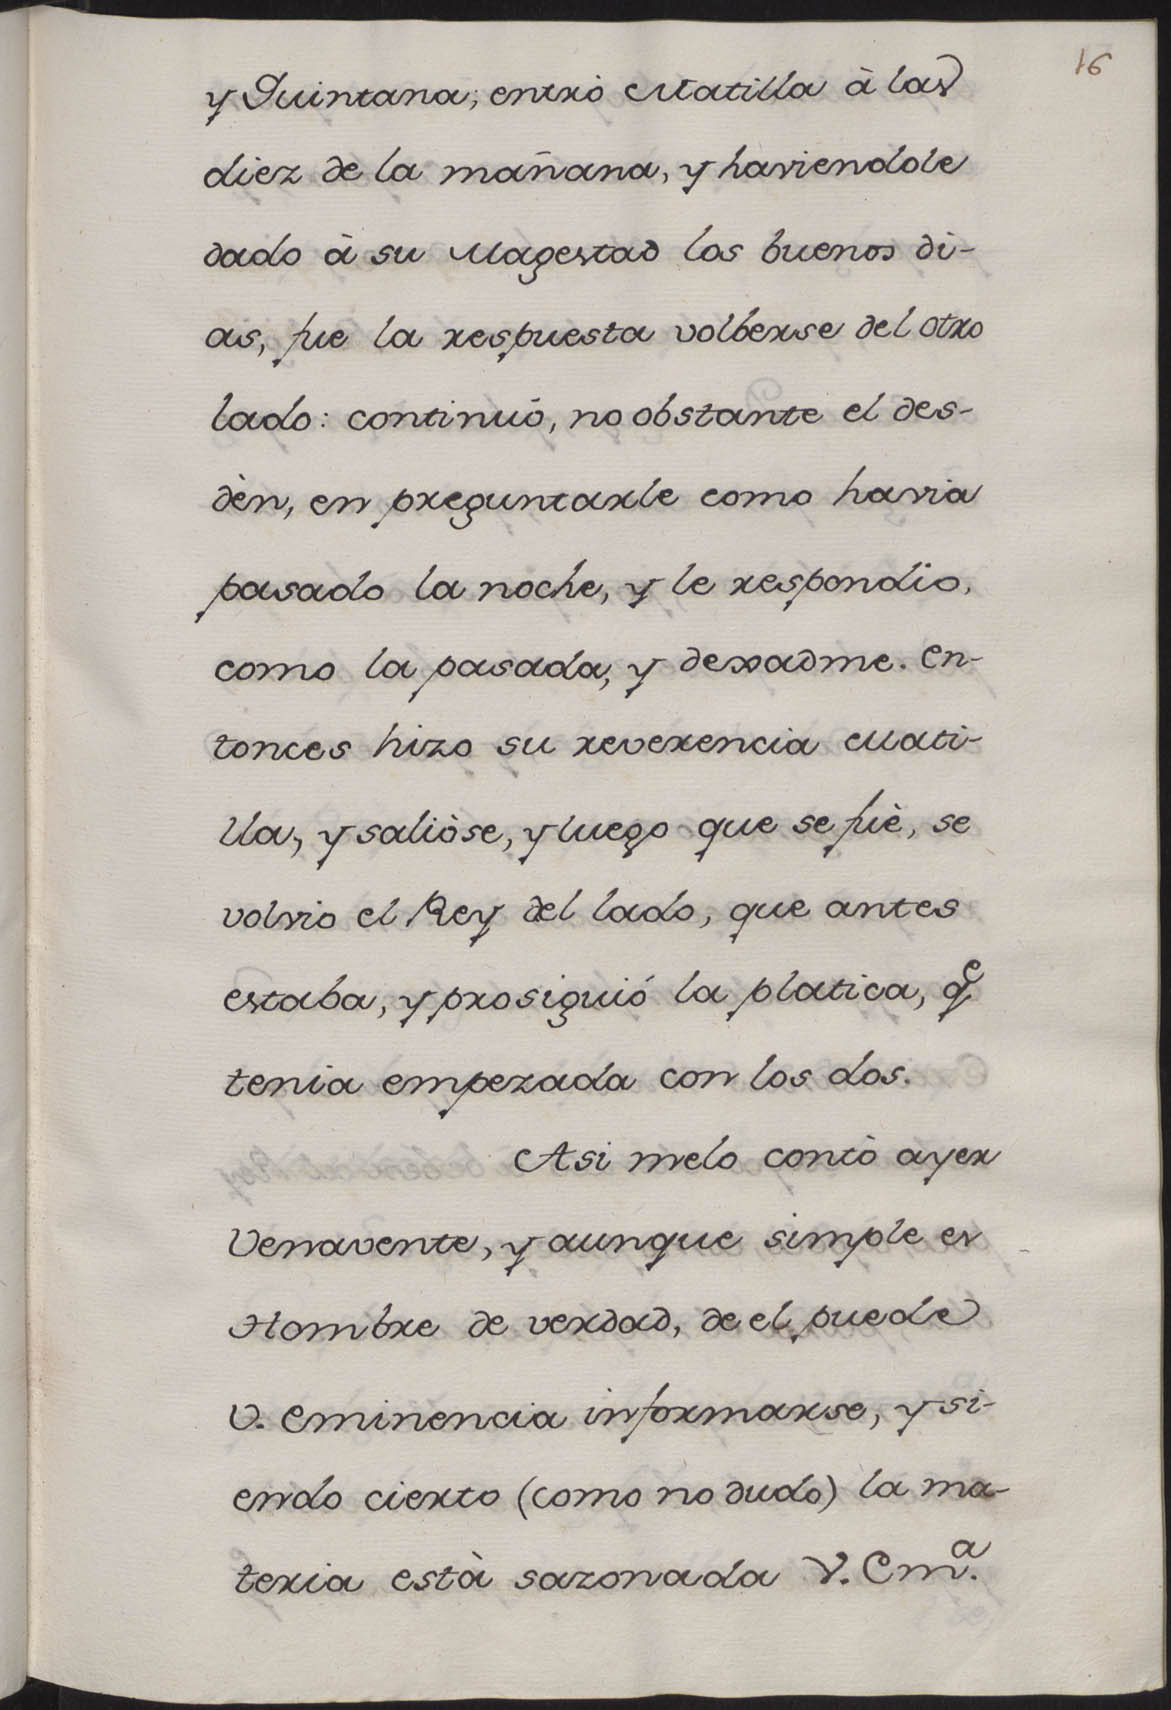 16
y Quintana; entrò Matilla à las
diez de la mañana, y haviendole
dado à su Magestad los buenos di-
as, fue la respuesta volberse del otro
lado: continuó, no obstante el des-
dèn, en preguntarle como havia
pasado la noche, y le respondio,
como la pasada, y dexadme. En-
tonces hizo su reverencia Mati-
lla, y saliòse, y luego que se fuè, se
volvio el Rey del lado, que antes
estaba, y prosiguió la platica, qe
tenia empezada con los dos.
Asi melo contò ayer
Venavente, y aunque simple es
Hombre de verdad, de el puede
V. Eminencia informarse, y si-
endo cierto (como no dudo) la ma-
teria està sazonada V. Ema.